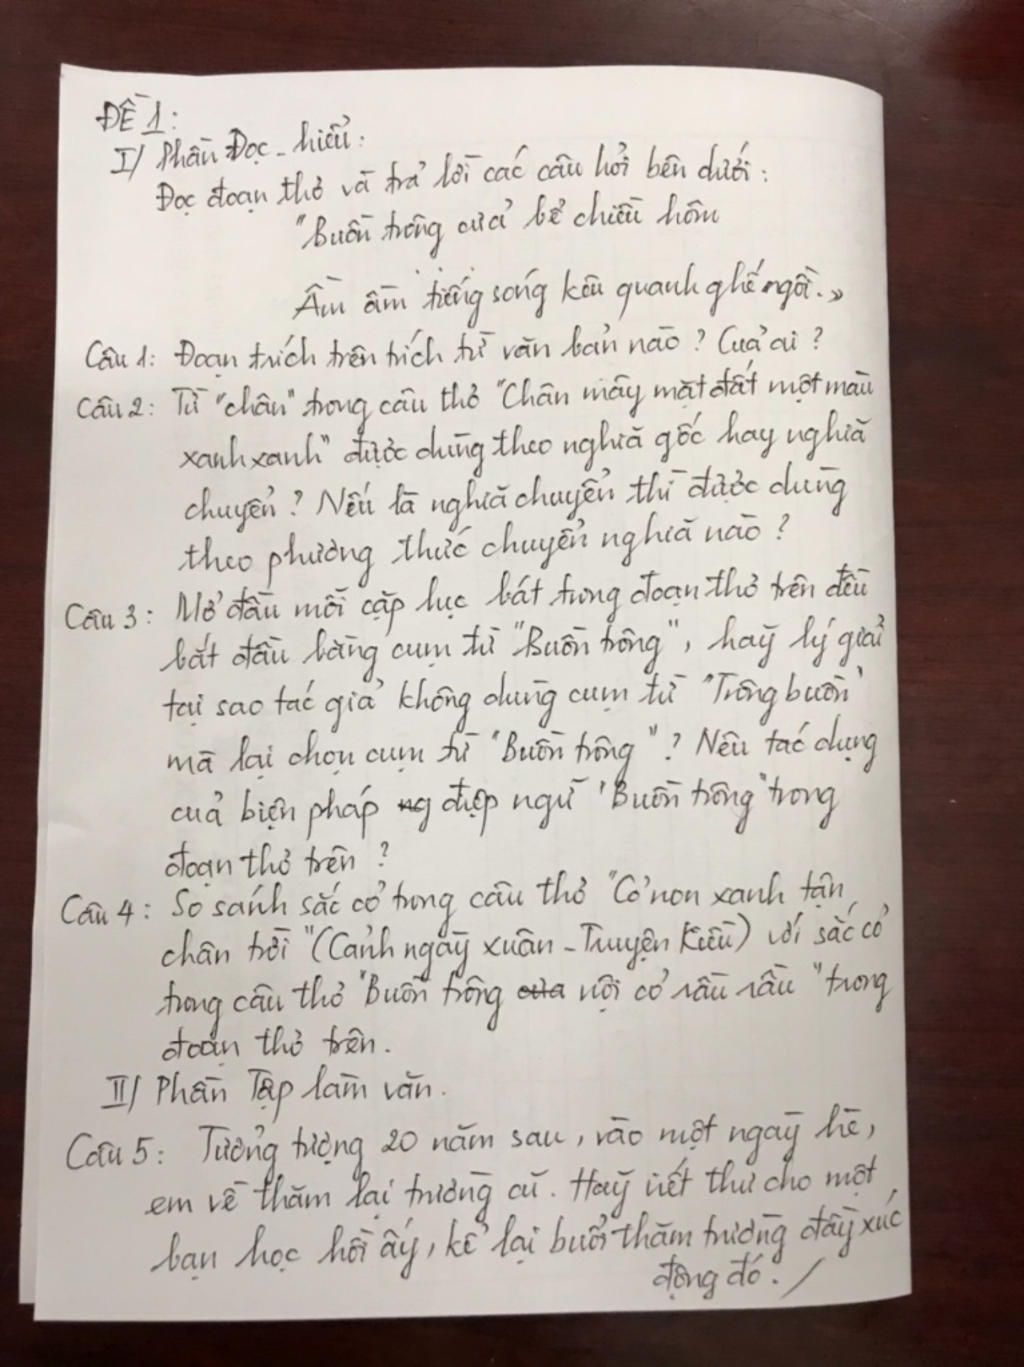 ĐỀ 1:
I/ Phần Đọc - hiểu:
Đọc đoạn thơ và trả lời các câu hỏi bên dưới:
"Buồn trông cửa bể chiều hôm
. . .
Ầm ầm tiếng sóng kêu quanh ghế ngồi."
Câu 1: Đoạn trích trên trích từ văn bản nào? Của ai?
Câu 2: Từ "chân" trong câu thơ "Chân mây mặt đất một màu
xanh xanh" được dùng theo nghĩa gốc hay nghĩa
chuyển? Nếu là nghĩa chuyển thì được dùng
theo phương thức chuyển nghĩa nào?
Câu 3: Mở đầu mỗi cặp lục bát trong đoạn thơ trên đều
bắt đầu bằng cụm từ "Buồn trông", hãy lý giải
tại sao tác giả không dùng cụm từ "Trông buồn"
mà lại chọn cụm từ "Buồn trông"? Nêu tác dụng
của biện pháp ng điệp ngữ "Buồn trông" trong
đoạn thơ trên?
Câu 4: So sánh sắc cỏ trong câu thơ "Cỏ non xanh tận
chân trời" (Cảnh ngày xuân - Truyện Kiều) với sắc cỏ
trong câu thơ "Buồn trông cửa nội cỏ rầu rầu" trong
đoạn thơ trên.
II/ Phần Tập làm văn.
Câu 5: Tưởng tượng 20 năm sau, vào một ngày hè,
em về thăm lại trường cũ. Hãy viết thư cho một
bạn học hồi ấy, kể lại buổi thăm trường đầy xúc
động đó./